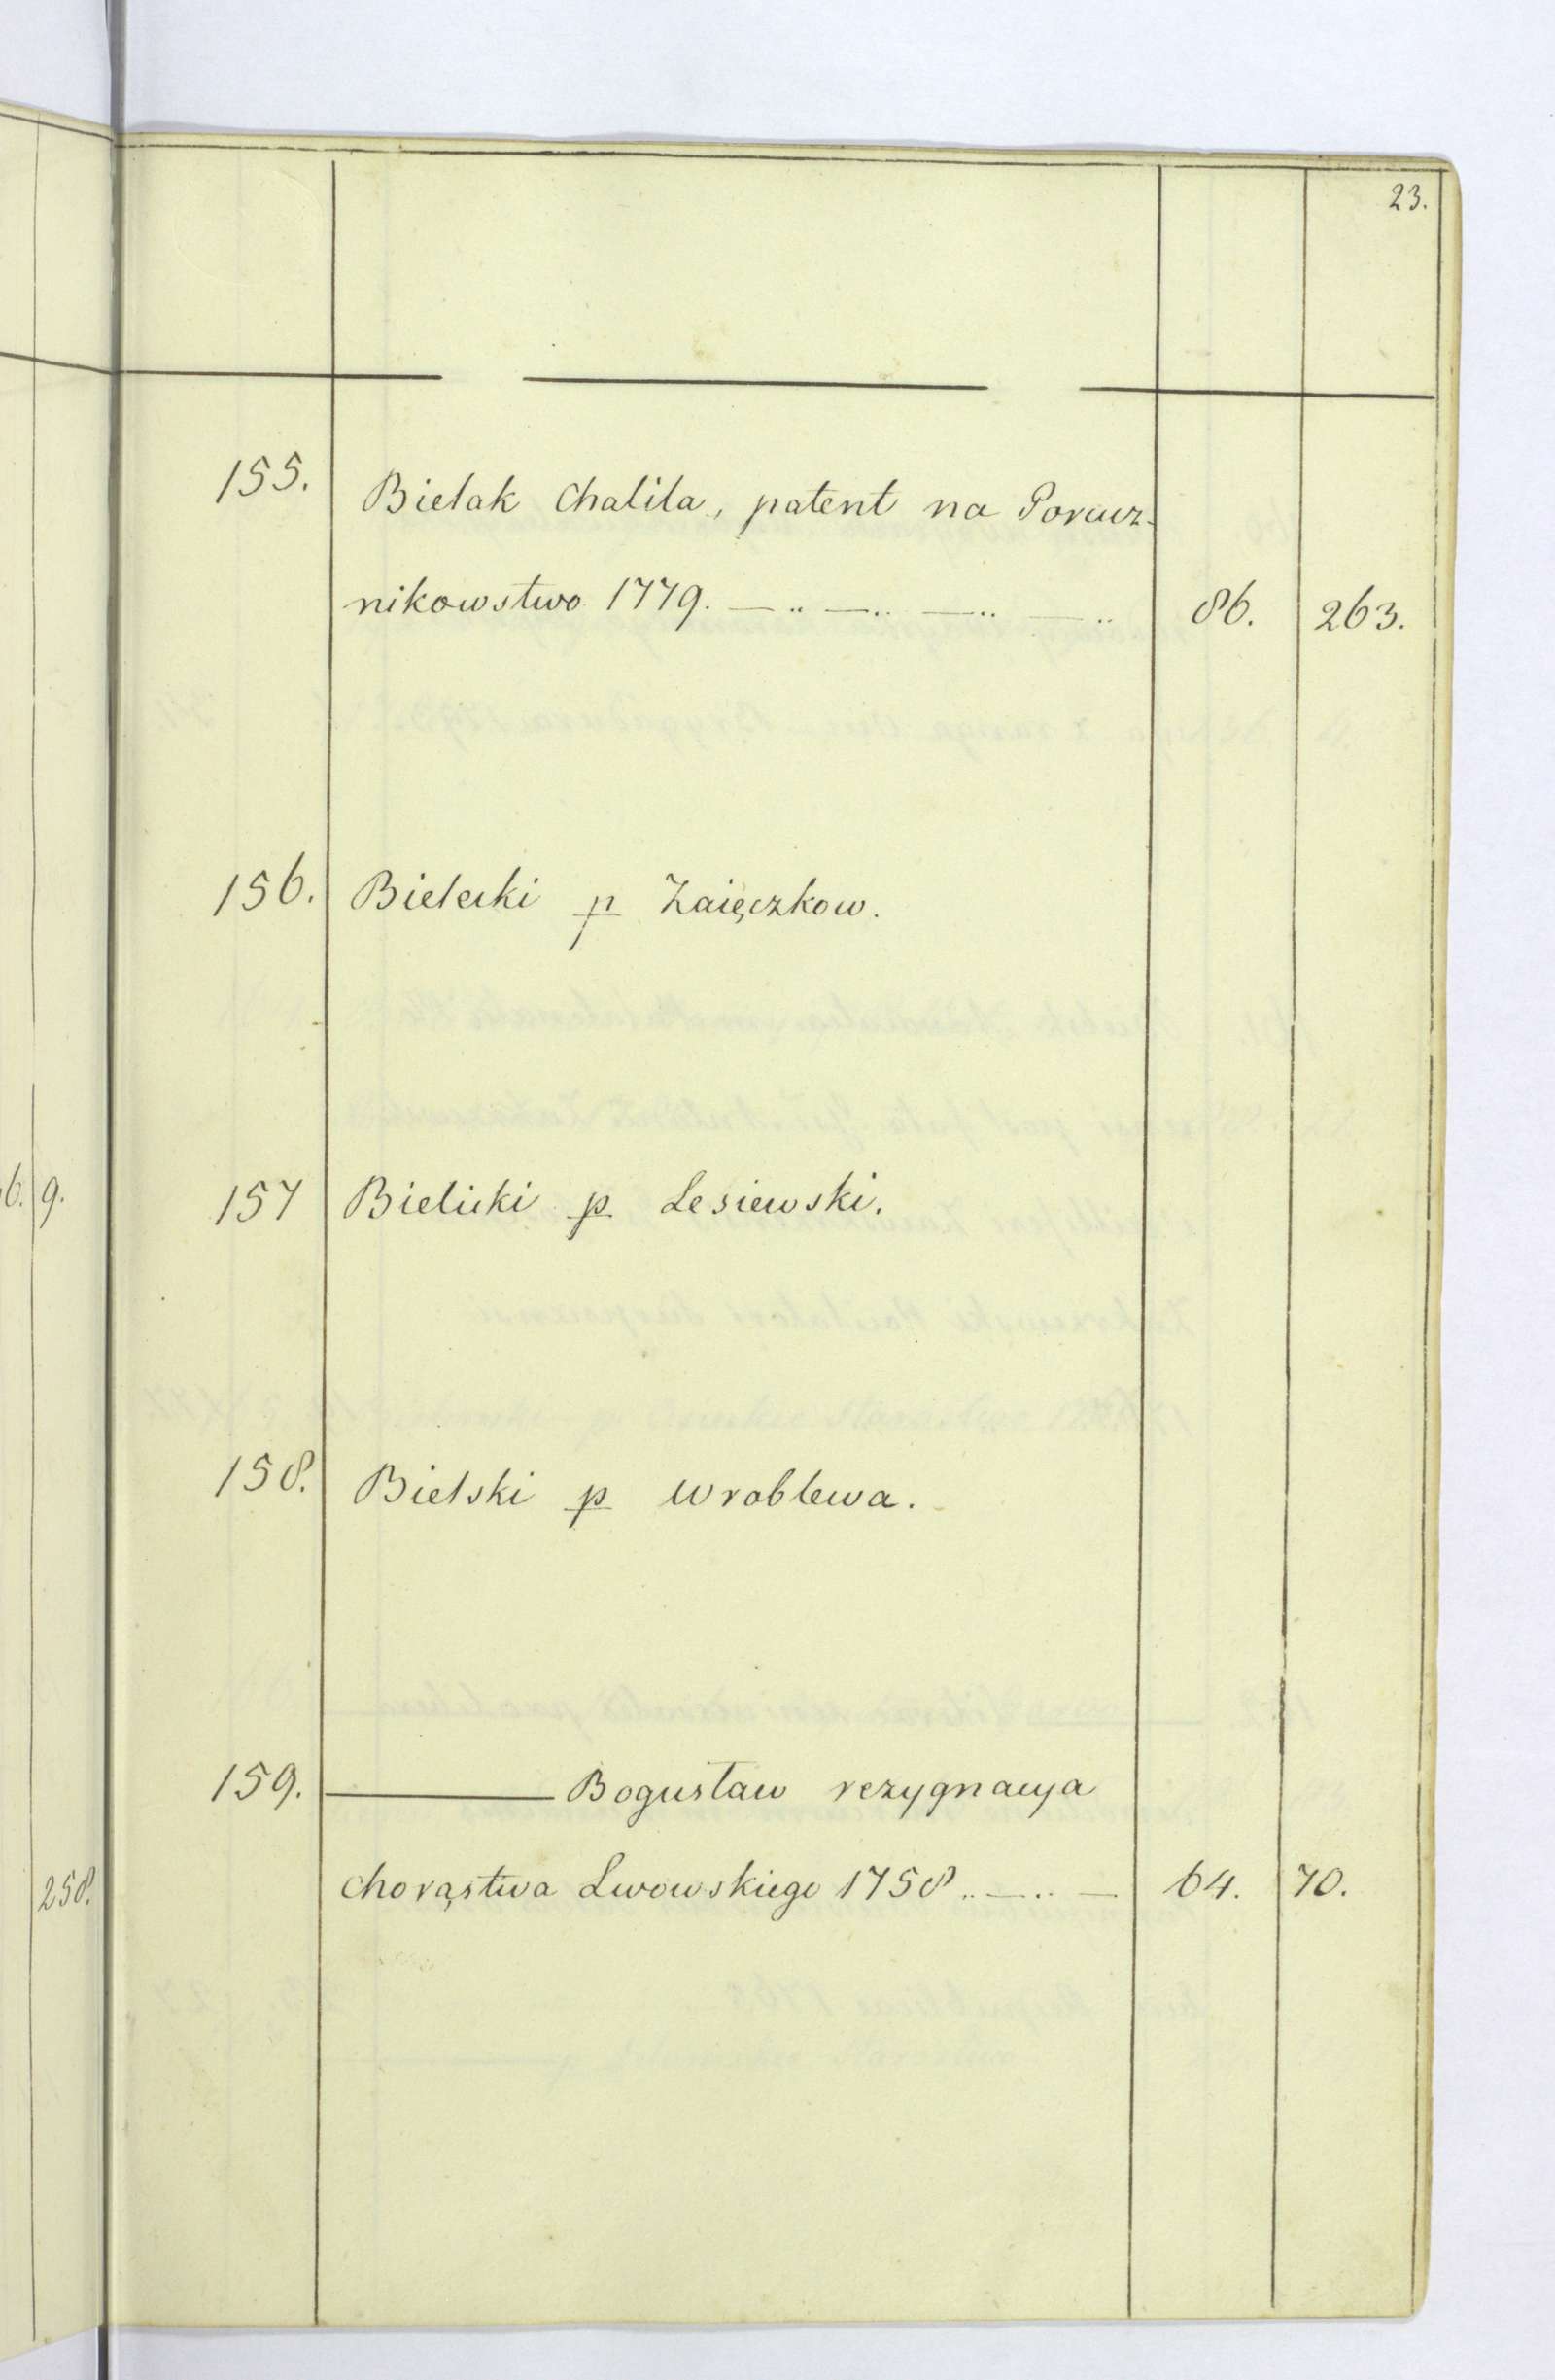 23.
155. Bielak Chalila, patent na Porucz-
nikowstwo 1779. — .. — .. — .. — .. 86. 263.
156. Bielecki p Zaięczkow.
157 Bielicki p Lesiewski.
158. Bielski p Wroblewa.
159. ——— Bogusław rezygnacya
Chorąstwa Lwowskiego 1758 .. — .. — 64. 70.
6. 9.
258.